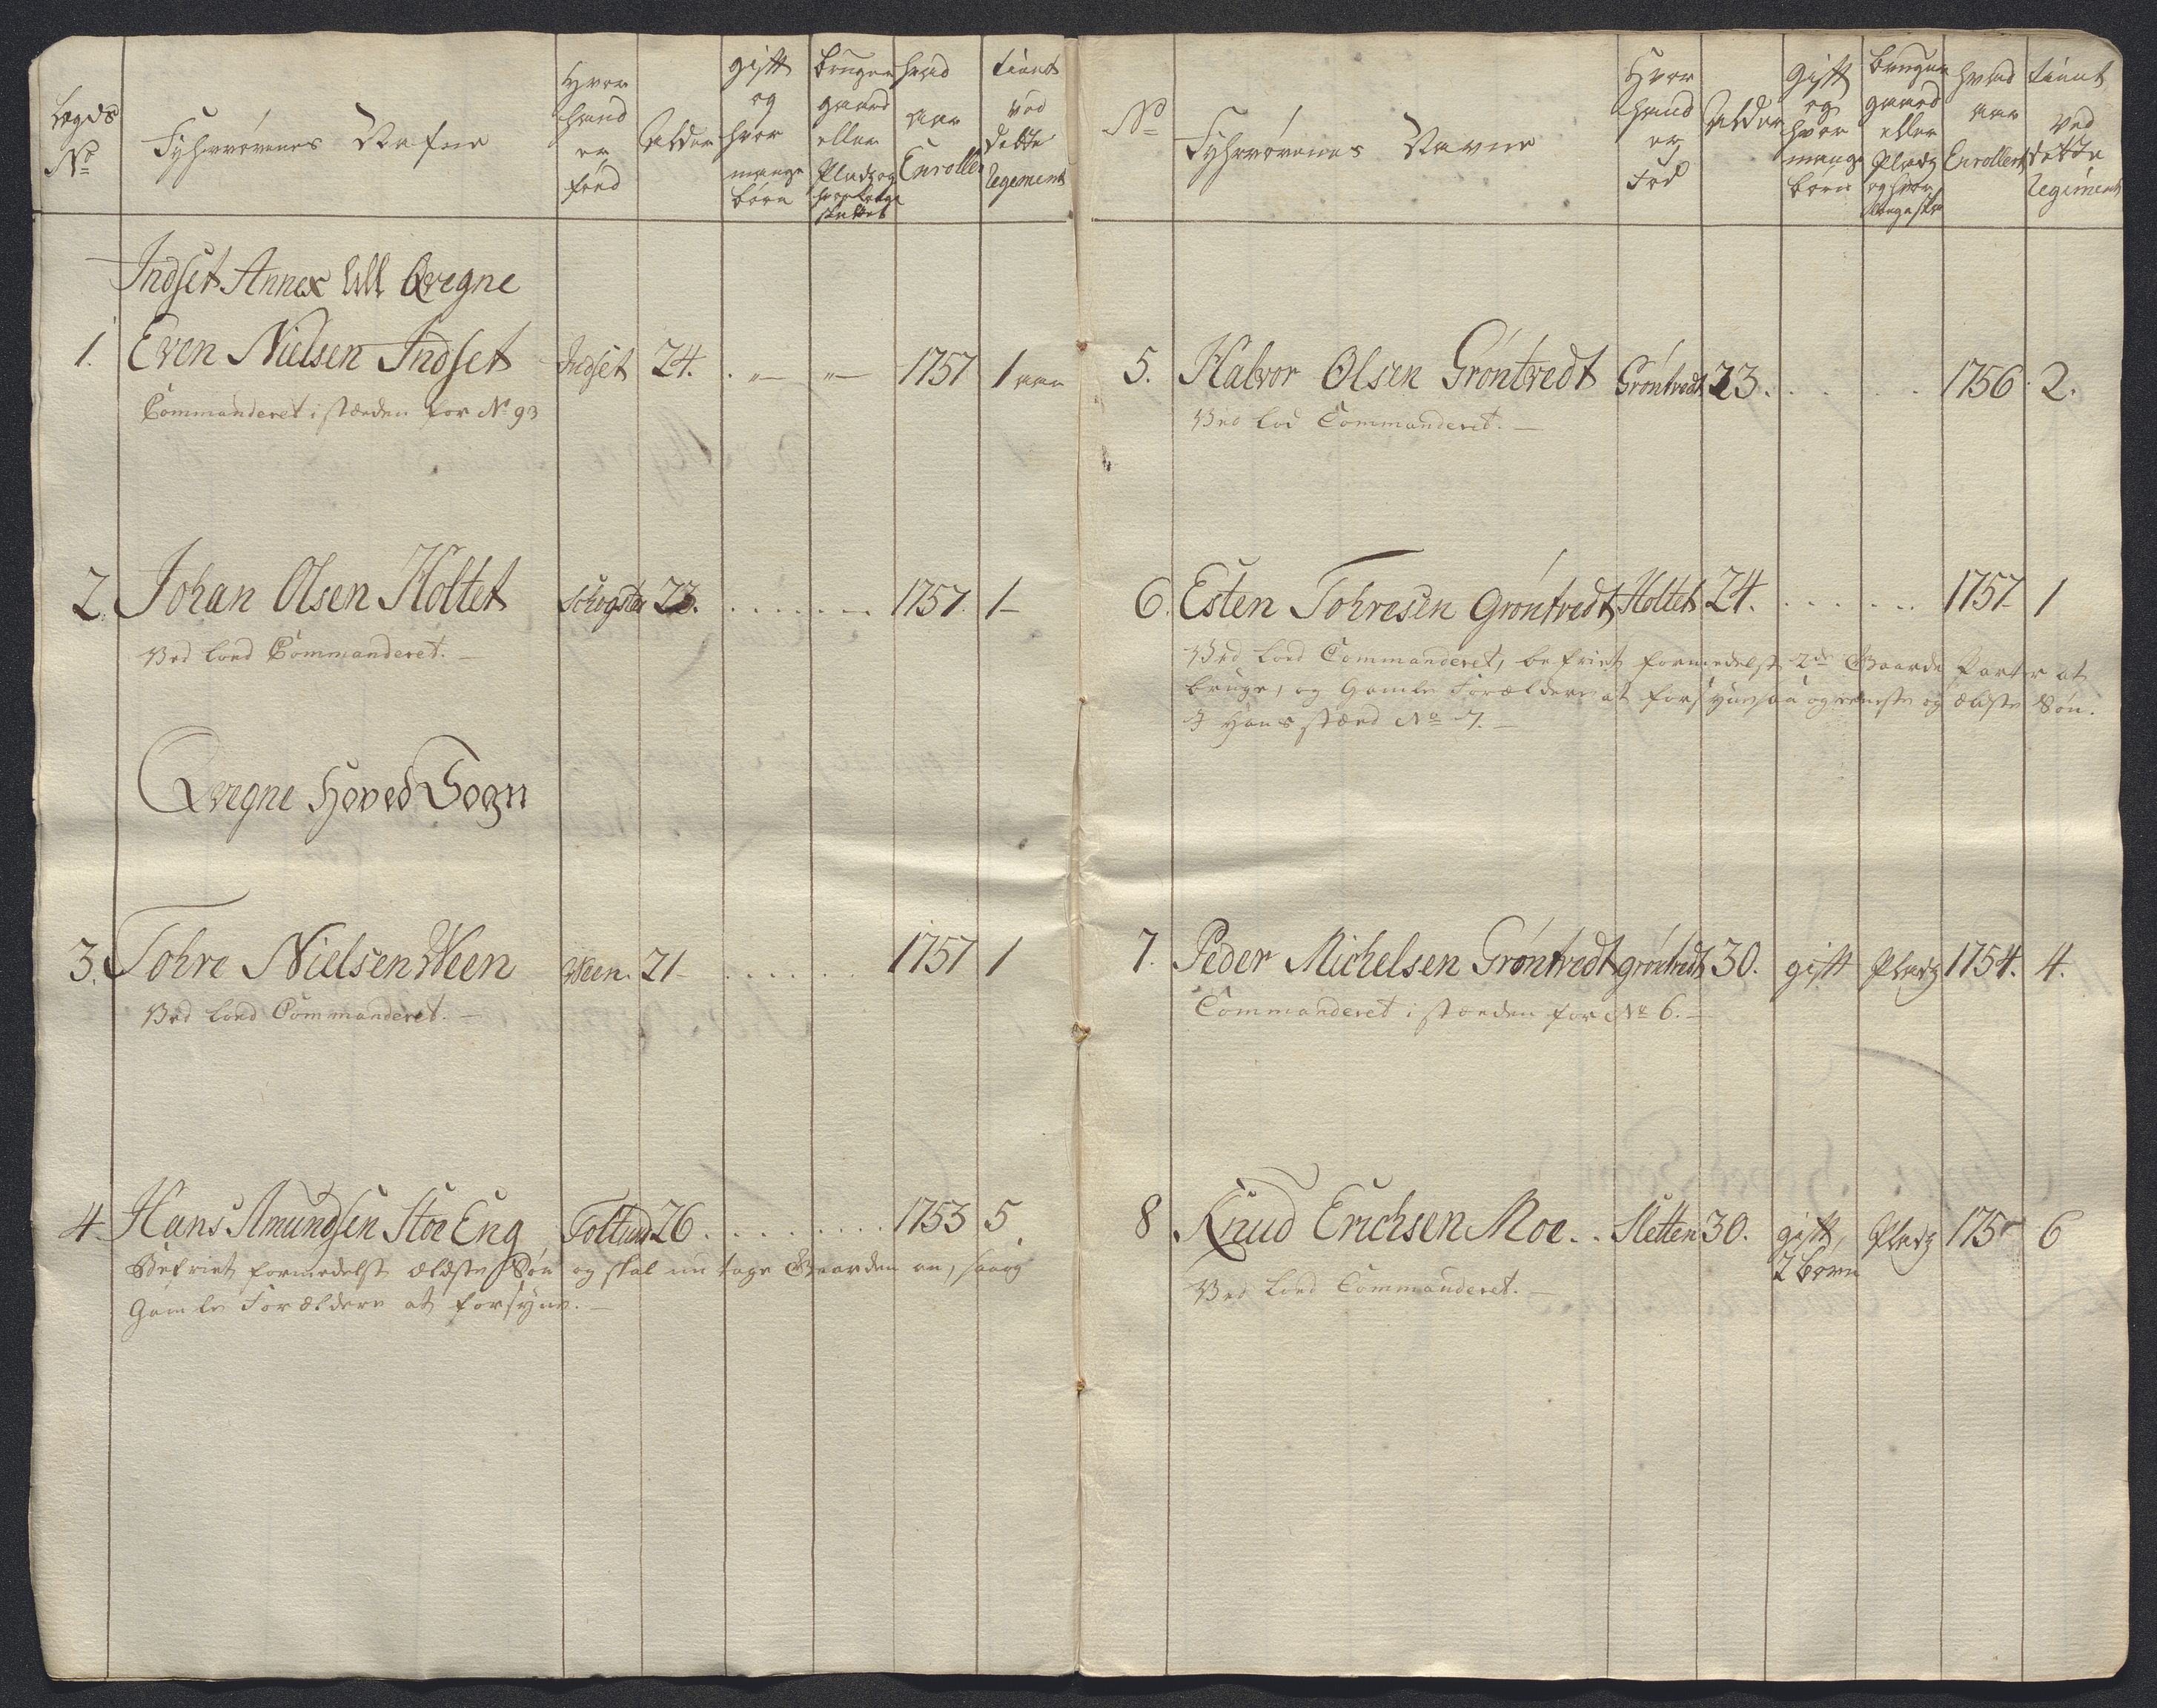 Legds
No
Fyhrrørenes Nafne
Hvor
hand
er
fønd
Alder
gift
og
hvor
mange
børn
bruger
gaard
eller
Pladz og
skattet
hvad
aar
Enrollert
tient
ved
dette
Regement
Indset Annex till Qvegne
1. Even Nielsen Indset Indset 24. . „ — „ — 1757 1 aar
Commanderet i stæden for No 93
2. Johan Olsen Holtet 23. . . . . . . . 1757. 1-
Ved Lod Commanderet. —
Qvegne Hoved Sogn
3. Tohre Nielsen Ween Ween. 21- . . . . . 1757 1
Ved Lod Commanderet. —
4. Hans Amundsen Stor Eng 26. . . . . . . . 1753 5
Befriet formedelst ældste Søn og skal nu tage Gaarden an, saaog
Gamle Forældere at forsyne. —
No
Fyhrrørenes Navne
Hvor
hand
er
Fød
Alder
Gift
og
hvor
mange
børn
bruger
gaard
eller
Pladz
og hvor
mange
hvad
aar
Enrollert
tient
ved
dette
Regiment
5. Halvor Olsen Grøntvedt Grøntvedt 23. . . . . . 1756. 2.
Ved Lod Commanderet. —
6. Esten Tohresen Grøntvedt Holtet 24. . . . . . . 1757- 1
Ved Lod Commanderet, befriet formedelst 2de Gaarde Parter at
bruge, og Gamle Forældere at forsyne saa og eneste og ældste Søn.
I Hans stæd No 7. —
7. Peder Michelsen Grøntvedt grøntvedt 30. gift Pladz 1754. 4.
Commanderet i stæden for No 6. —
8 Knud Erichsen Moe. . Sletten 30. gift, Pladz 6
2 børn
Ved Lod Commanderet. —